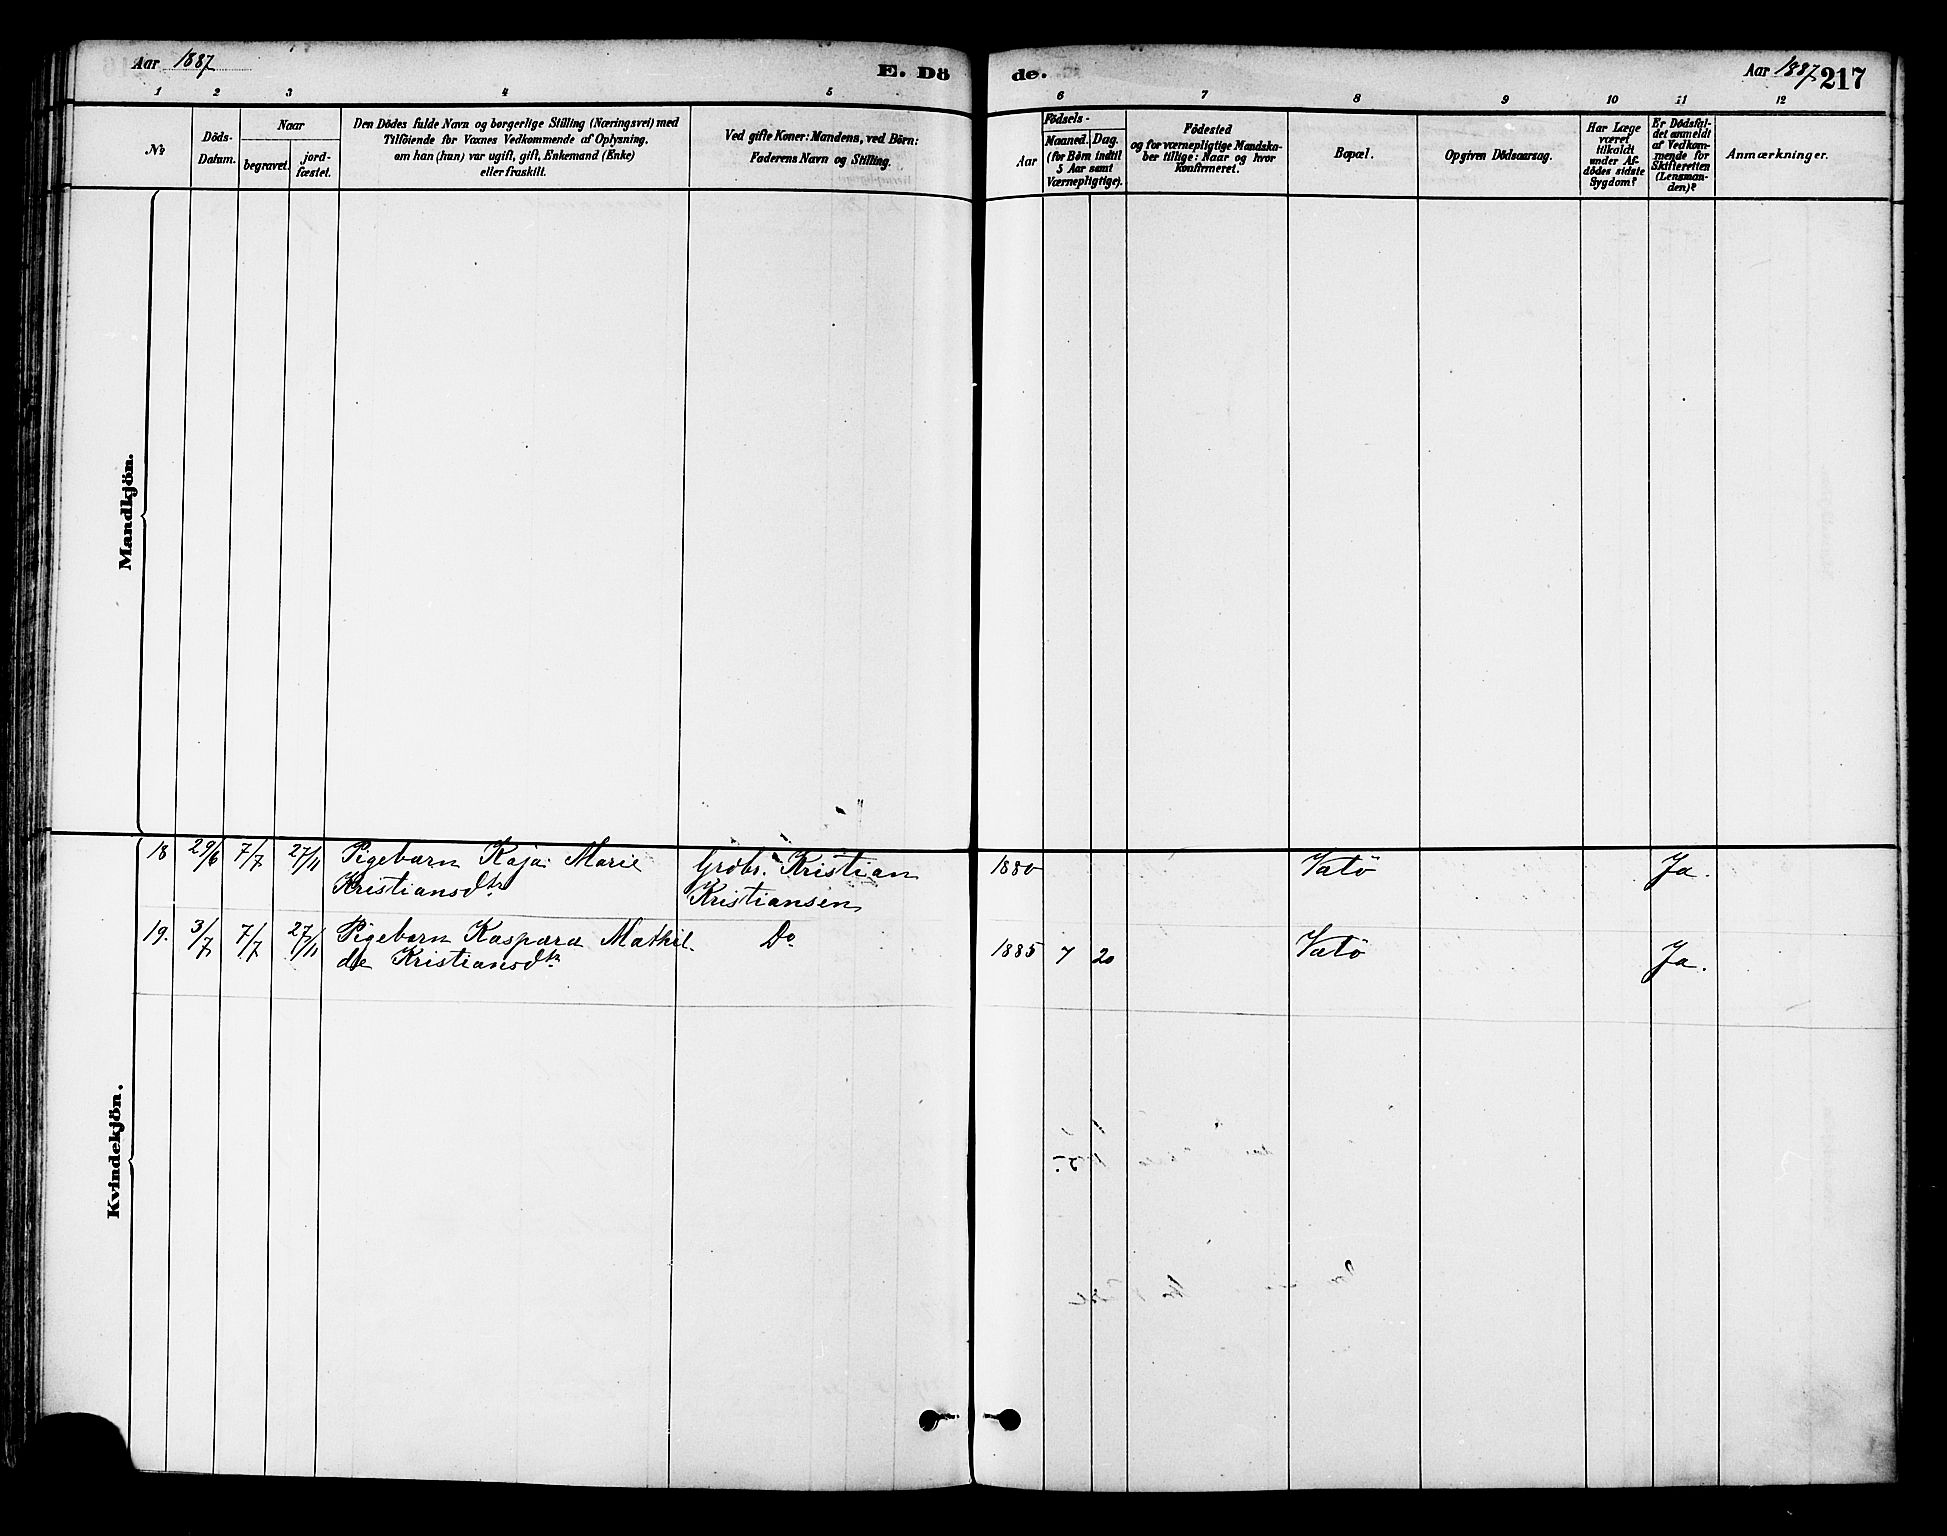 Aar 1887
E. Dö
de.
Aar 1887. 217
1 2 3 4 5 6 7 8 9 10 11 12
No
Döds-
Datum.
Naar
begravet.
jord-
fæstet.
Den Dödes fulde Navn og borgerlige Stilling (Næringsvei) med
Tilföiende for Voxnes Vedkommende af Oplysning,
om han (hun) var ugift, gift, Enkemand (Enke)
eller fraskilt.
Ved gifte Koner: Mandens, ved Börn:
Faderens Navn og Stilling.
Födsels-
Aar
Maaned.
Dag.
(for Börn indtil
5 Aar samt
Værnepligtige).
Födested
og for værnepligtige Mandska-
ber tillige: Naar og hvor
Konfirmeret.
Bopæl.
Opgiven Dödsaarsag.
Har Læge
været
tilkaldt
under Af-
dödes sidste
Sygdom?
Er Dödsfal-
det anmeldt
af Vedkom-
mende for
Skifteretten
(Lensman-
den)?
Anmærkninger.
Mandkjön.
Kvindekjön.
18 29/6 7/7 27/11 Pigebarn Kaja Marie Grdbs. Kristian 1880 Vatö Ja.
Kristiansdtr Kristiansen
19. 3/7 7/7 27/11 Pigebarn Kaspara Mathil- Do 1885 7 20 Vatö Ja.
de Kristiansdtr